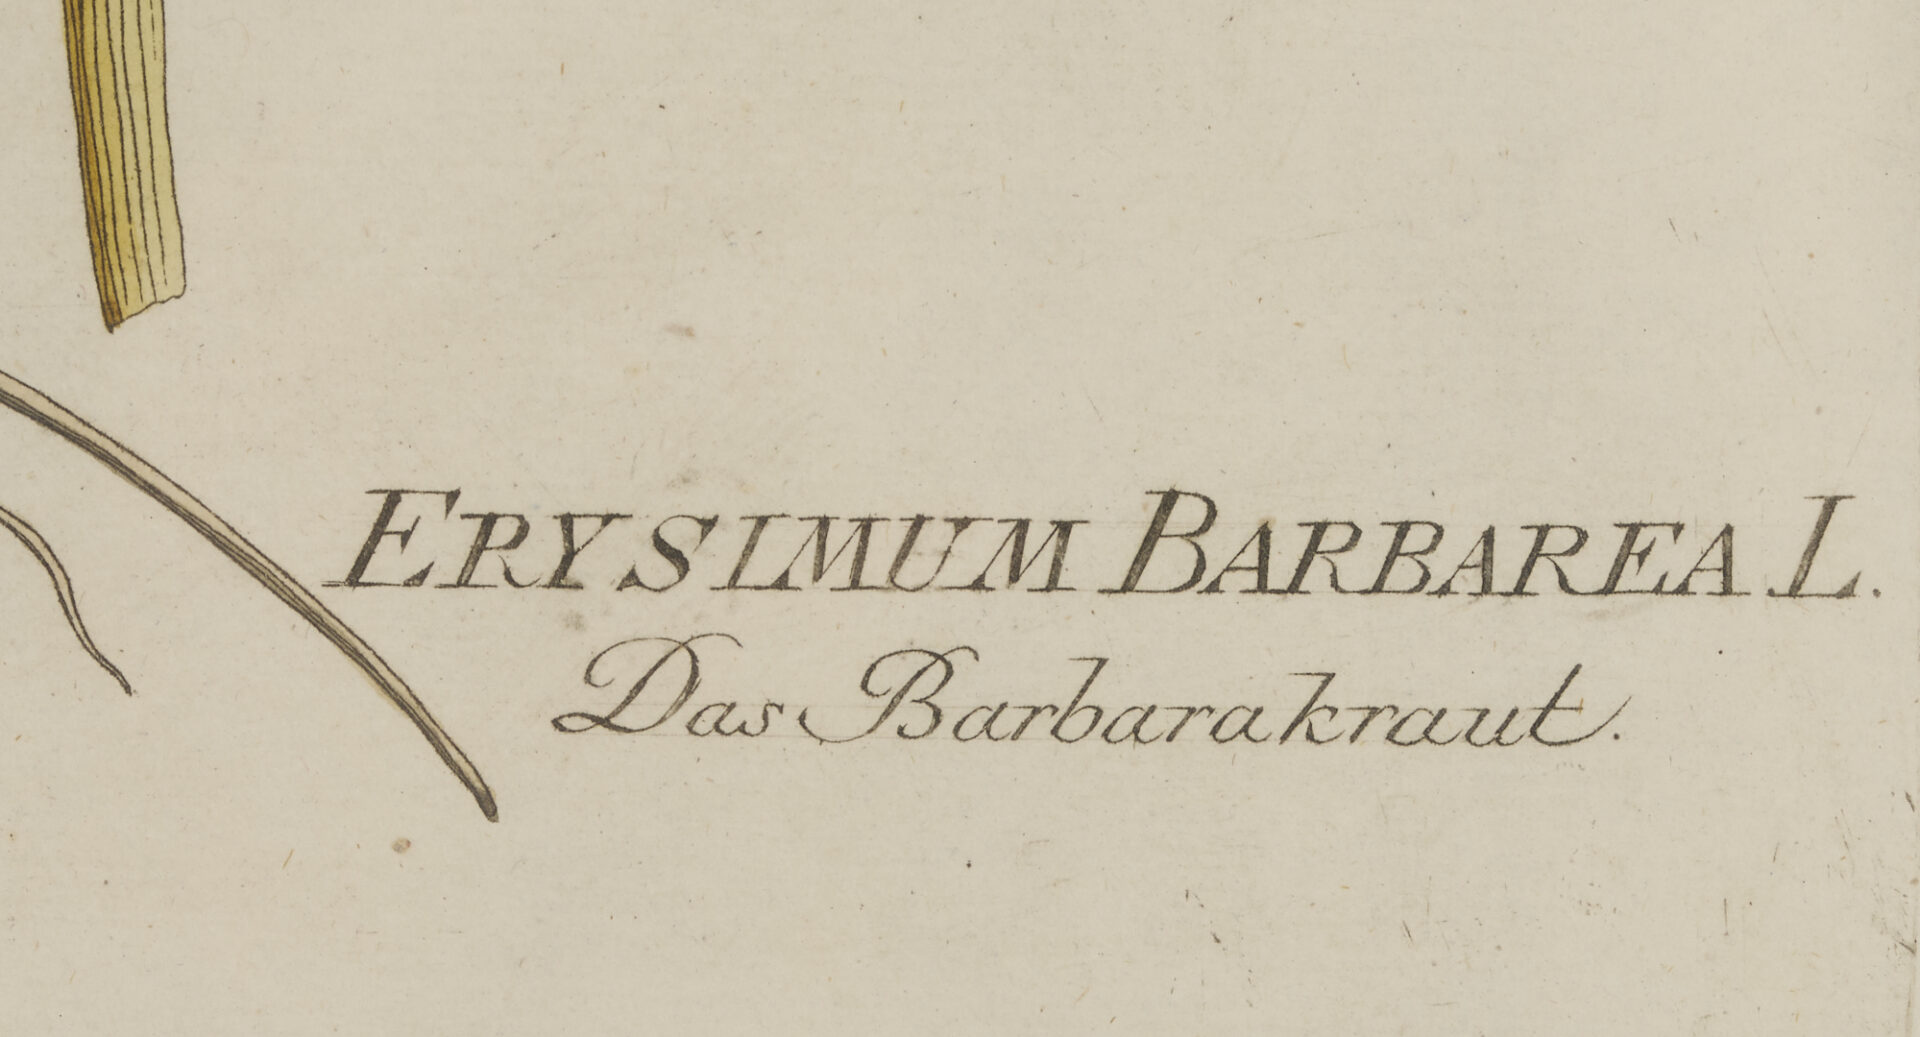 ERYSIMUM BARBAREA L.
Das Barbarakraut.